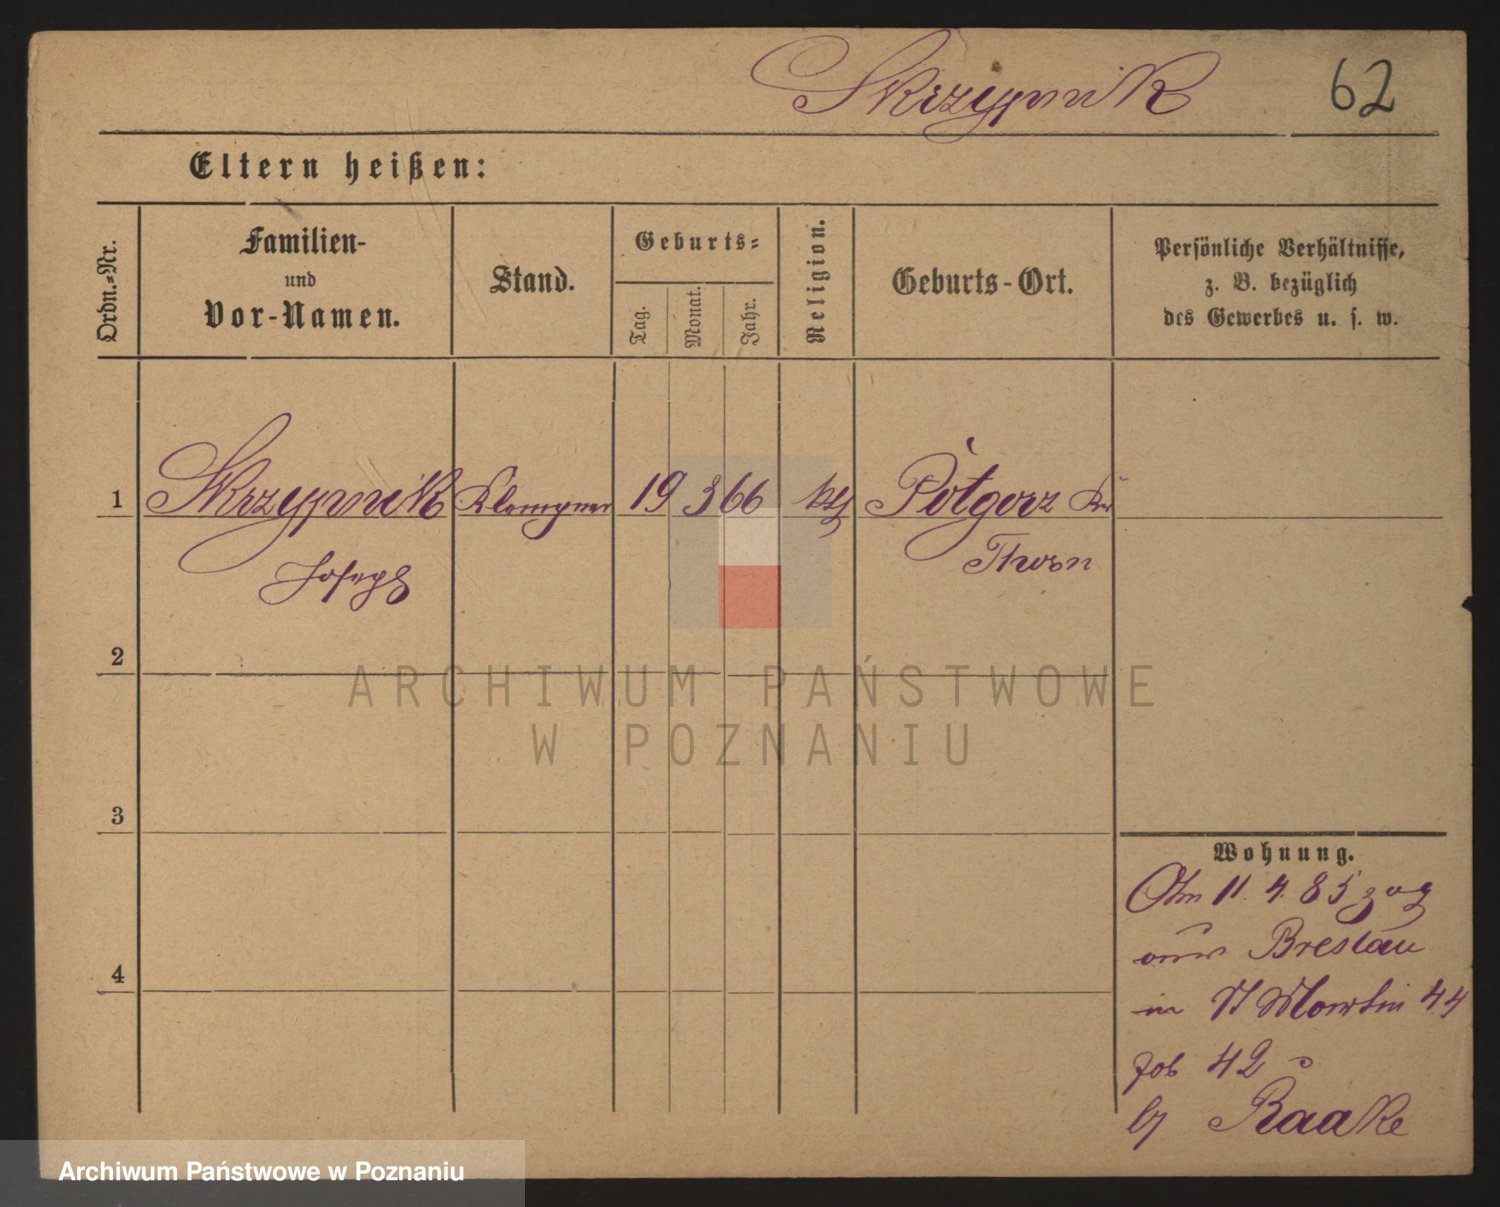 Skrzypnik 62
Eltern heißen:
Ordn.-Nr.
Familien-
und
Vor-Namen.
Stand.
Geburts-
Tag.
Monat.
Jahr.
Religion.
Geburts-Ort.
Persönliche Verhältnisse,
z. B. bezüglich
des Gewerbes u. s. w.
1 Skrzypnik Klempner 19 3 66 ktl Potgorz Kr
Joseph Thorn
2
3
4
Wohnung.
11. 4. 85 zog
aus Breslau
in St Martin 44
42
by Raake
ARCHIWUM PAŃSTWOWE
W POZNANIU
Archiwum Państwowe w Poznaniu